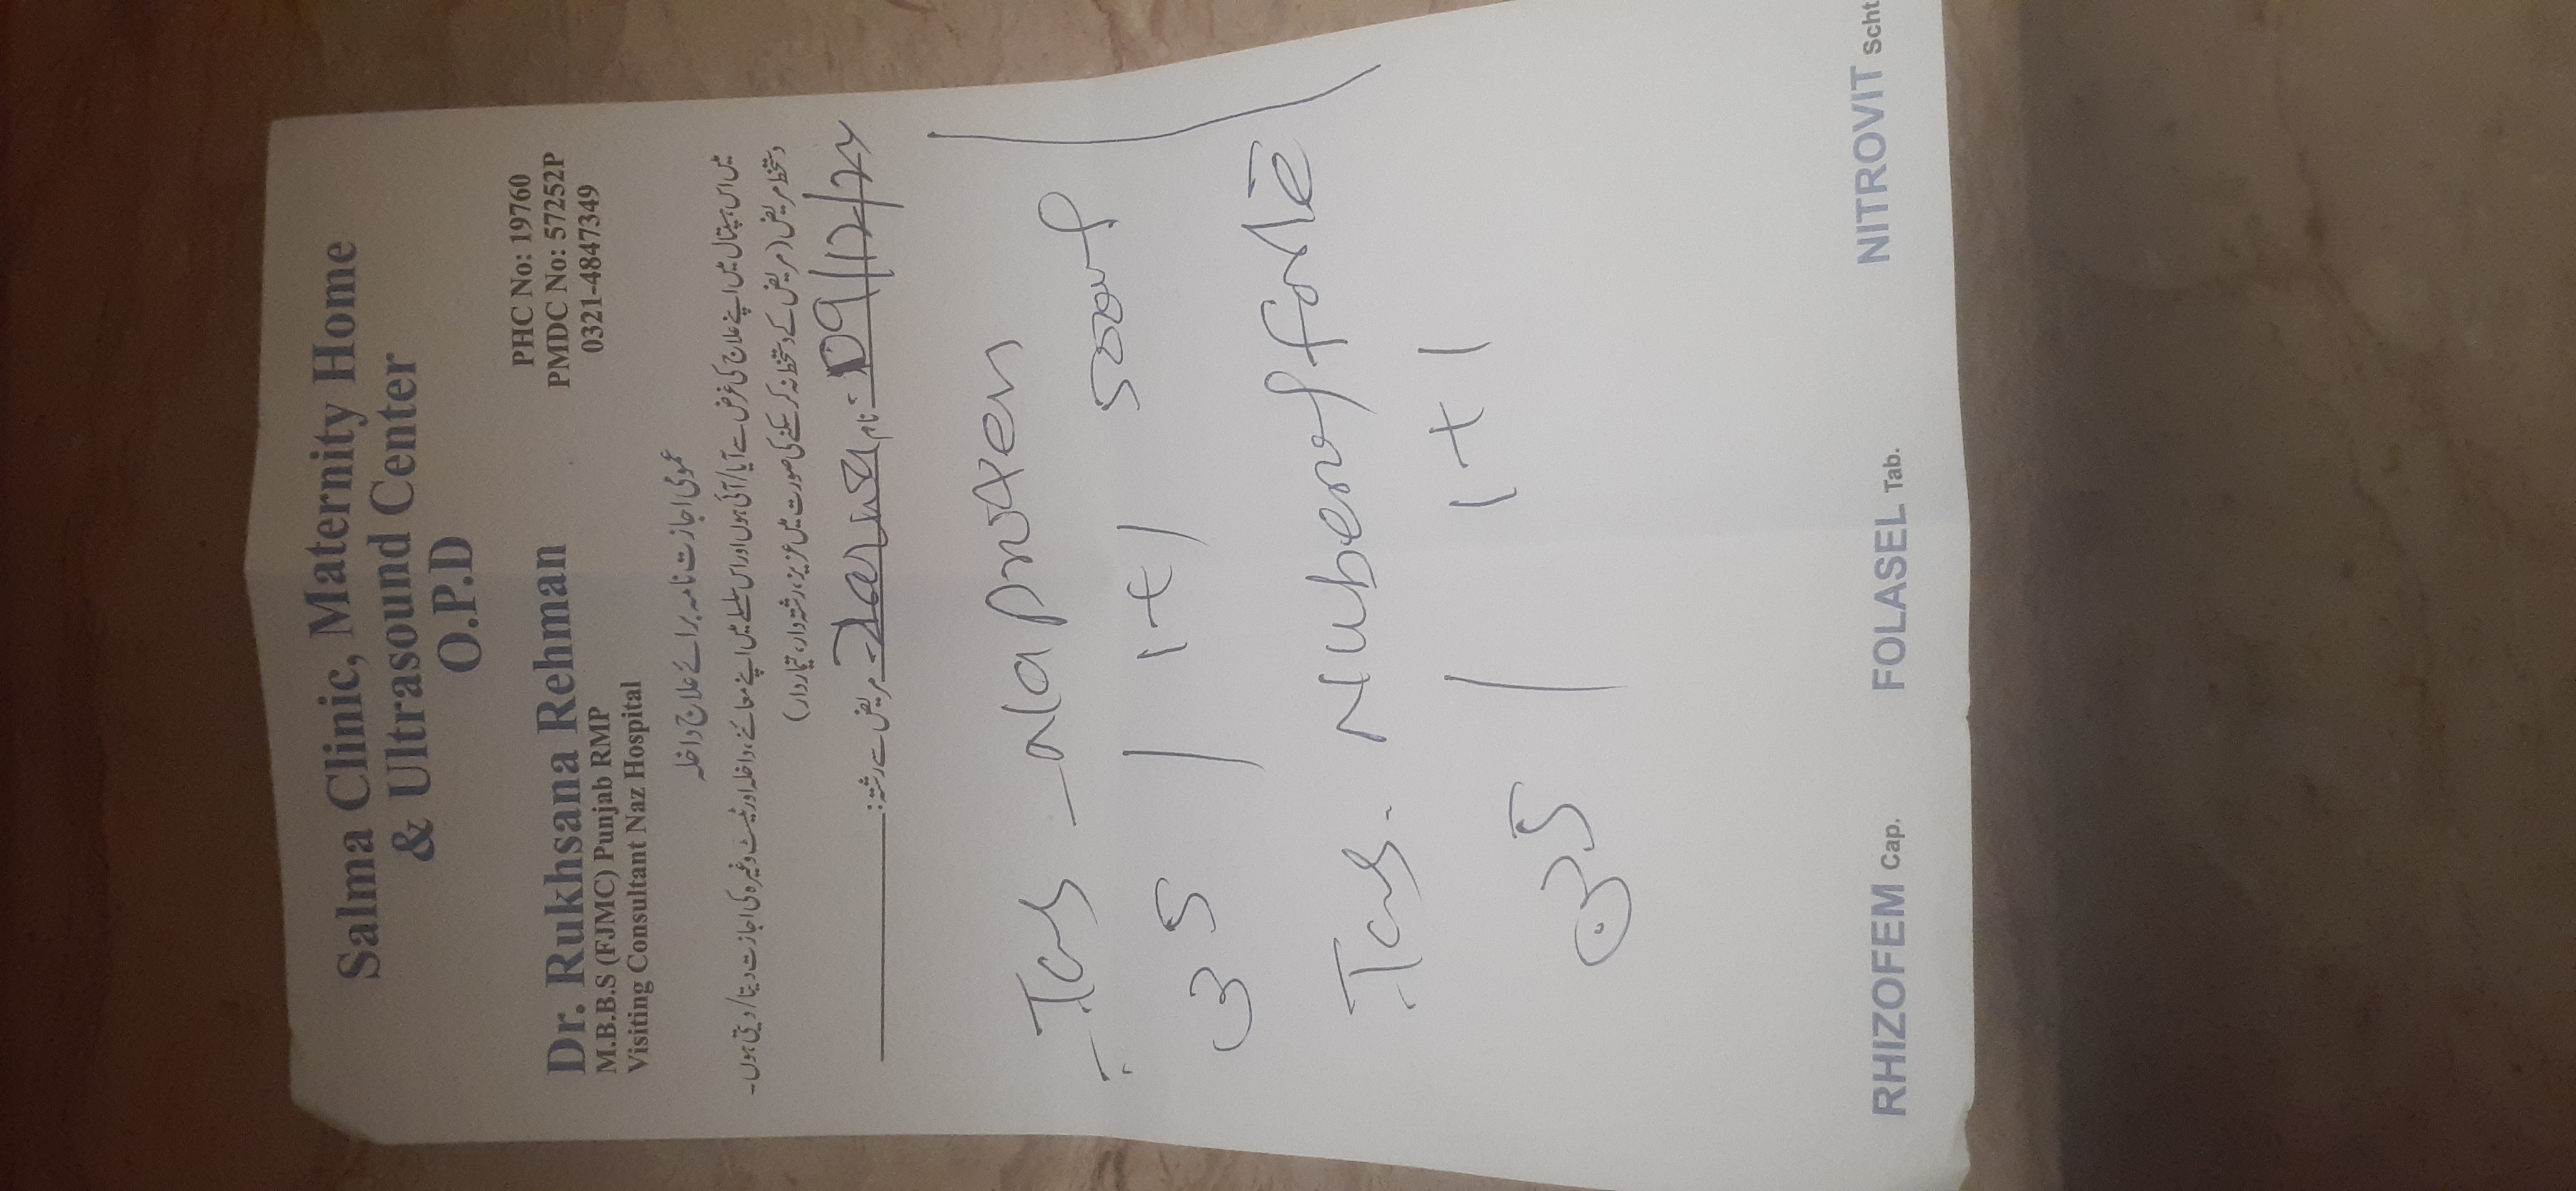 Salma Clinic, Maternity Home
& Ultrasound Center
O.P.D
Dr. Rukhsana Rehman
M.B.B.S (FJMC) Punjab RMP
Visiting Consultant Naz Hospital
PHC No: 19760
PMDC No: 57252P
0321-4847349
عمومی اجازت نامہ برائے علاج داخلہ
میں اس ہسپتال میں اپنے علاج کی غرض سے آیا/آئی ہوں اور اس سلسلے میں اپنے معائنے، داخلہ اور ٹیسٹ وغیرہ کی اجازت دیتا/دیتی ہوں۔
دستخط مریض (مریض کے دستخط نہ کر سکنے کی صورت میں عزیز، رشتہ دار، تیماردار)
09/12/24 نام مریض سے رشتہ:
Tab Naproxen
1+1 500mg
Tab. Nuberol forte
1+1
RHIZOFEM Cap.
FOLASEL Tab.
NITROVIT Scht